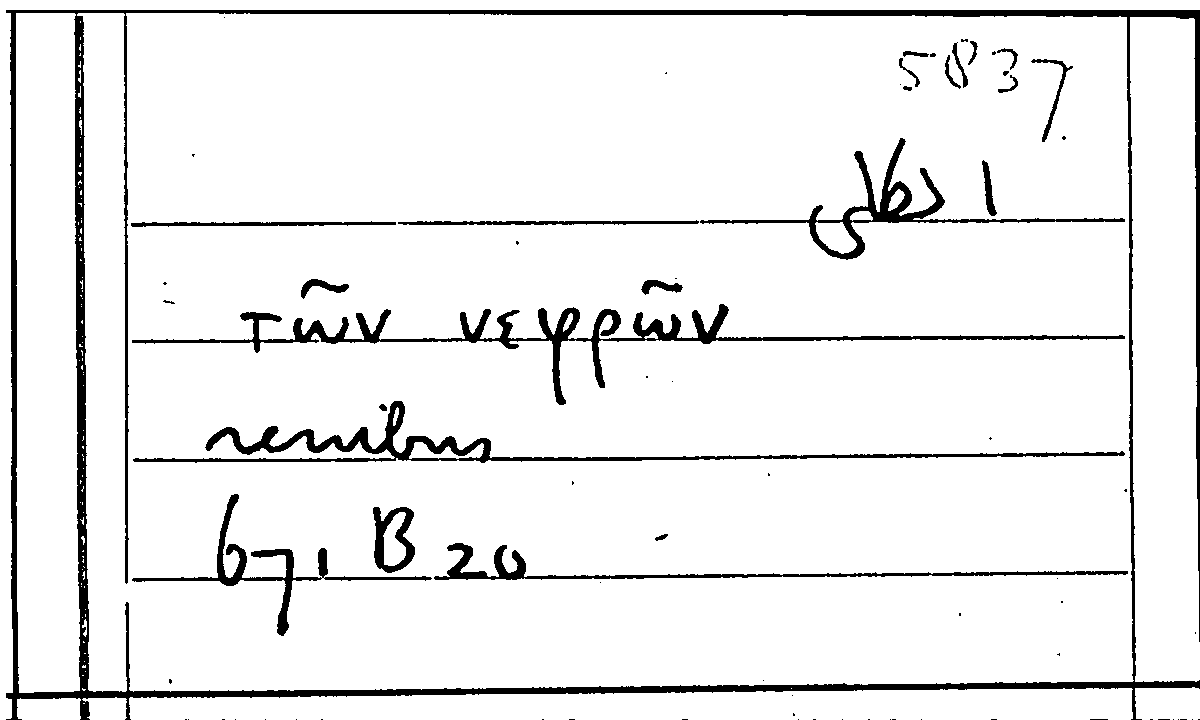 5837
τῶν νεφρῶν
renibus
671 B 20